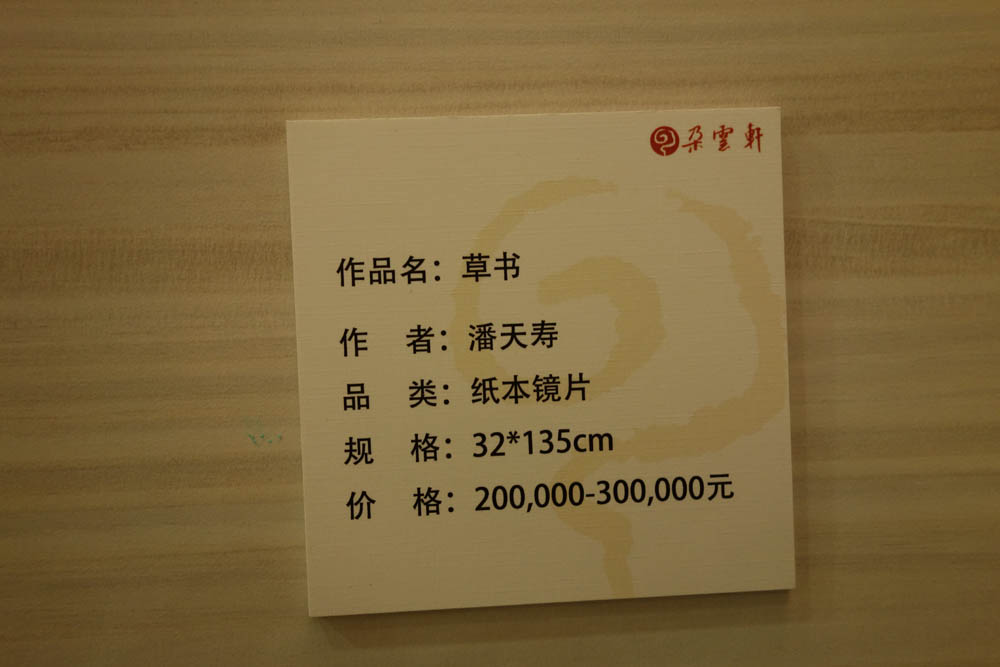 朵雲軒
作品名：草书
作 者：潘天寿
品 类：纸本镜片
规 格：32*135cm
价 格：200,000-300,000元